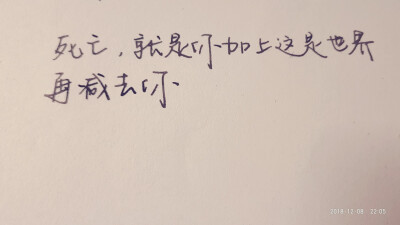 死亡，就是你加上这是世界
再减去你
2018-12-08 22:05